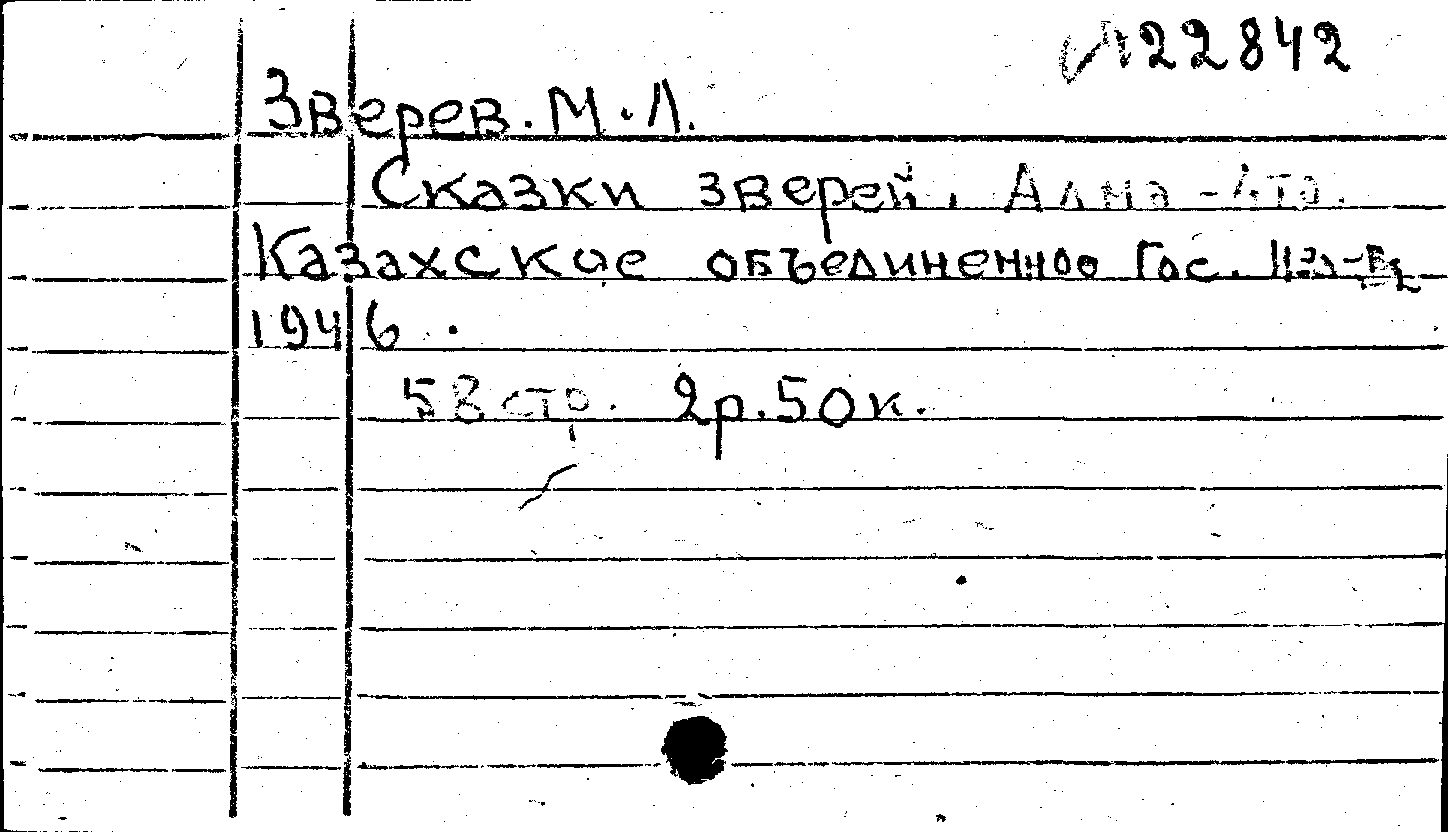 И22842
Зверев. М.Л.
Сказки зверей. Алма-Ата.
Казахское объединенное Гос. Из-во
1946.
58 стр. 2р.50к.